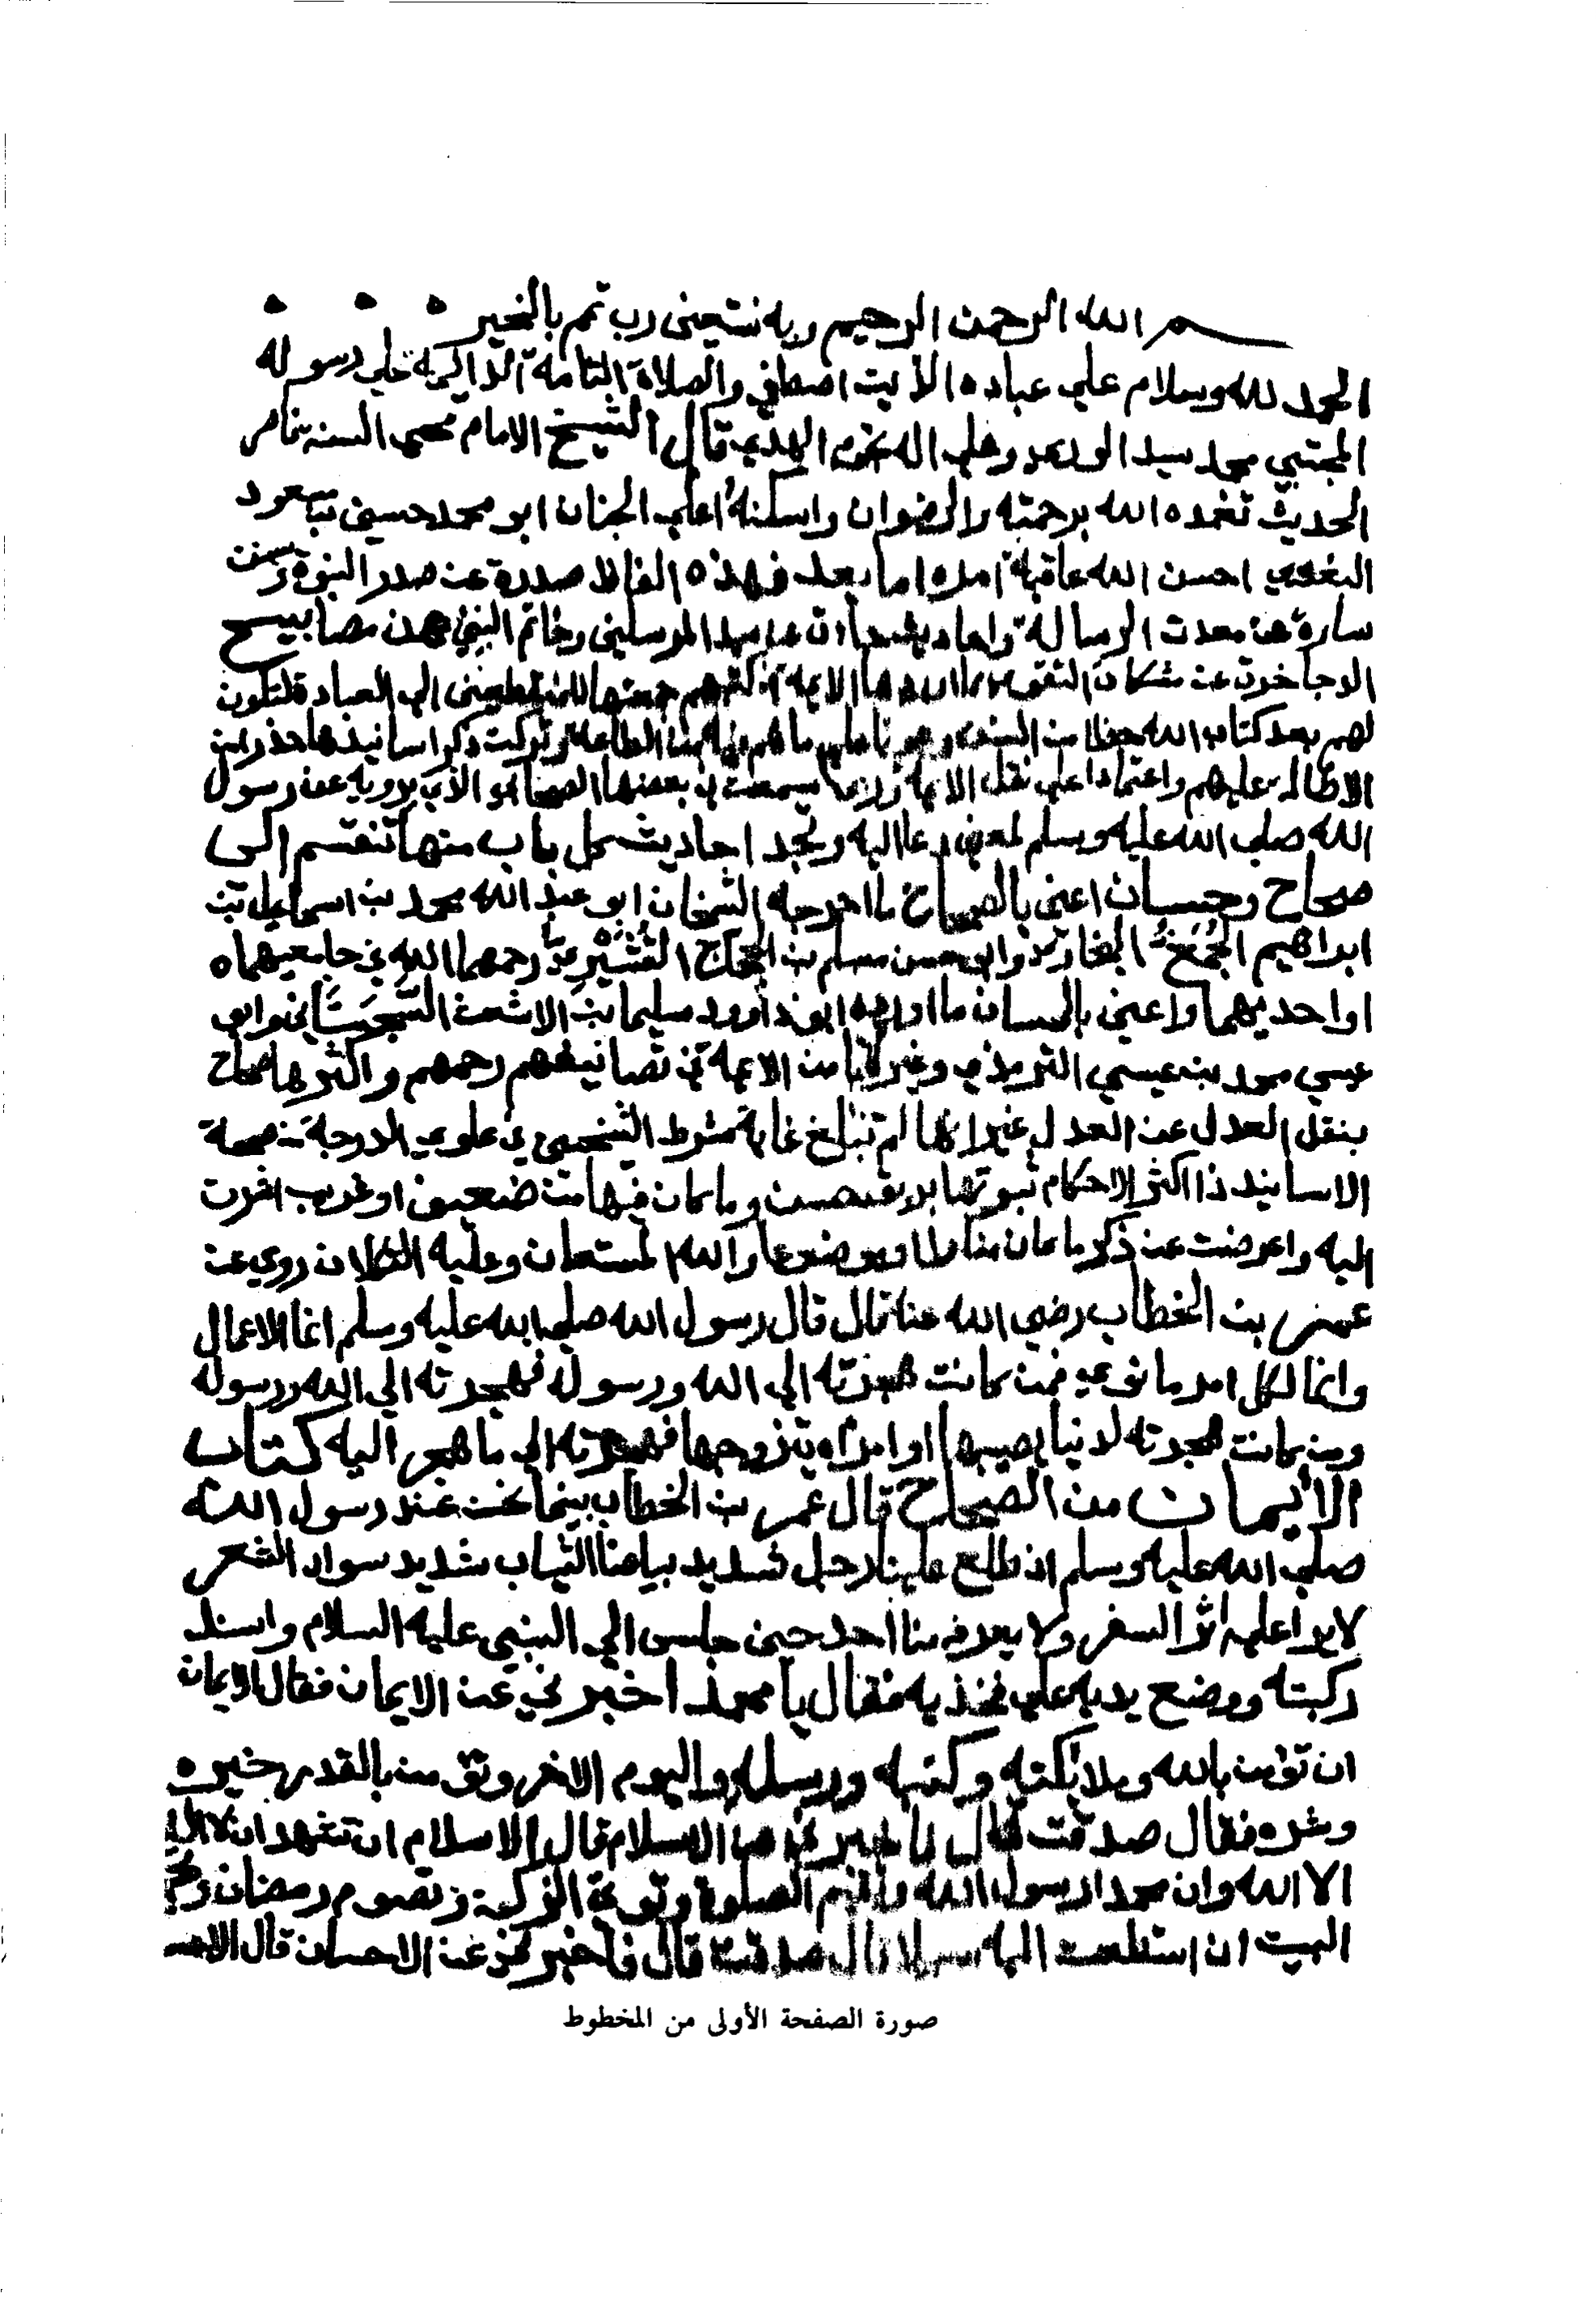 بسم الله الرحمن الرحيم وبه نستعين رب تمم بالخير
الحمد لله وسلام علي عباده الذين اصطفي والصلاة التامة الدائمة علي رسوله
المجتبي محمد سيد الوري وعلي اله نجوم الهدي قال الشيخ الامام محي السنه ناصر
الحديث تغمده الله برحمته والرضوان واسكنه اعلي الجنان ابو محمد حسين بن مسعود
البغوي احسن الله عاقبة امره اما بعد فهذه الفاظ صدرة عن صدر النبوة وسنن
سارة عن معدن الرسالة واحاديث جاءت عن سيد المرسلين وخاتم النبيين هن مصابيح
الدجا خرجت عن مشكاة التقوي مما اوردها الايمة في كتبهم جمعتها للمنقطعين الي العبادة لتكون
لهم بعد كتاب الله حظا من السنن وعونا علي ما هم فيه من الطاعة وتركت ذكر اسانيدها حذرا من
الاطالة عليهم واعتمادا علي نقل الايمة وربما سميت في بعضها الصحابي الذي يرويه عن رسول
الله صلي الله عليه وسلم لمعني دعا اليه وتجد احاديث كل باب منها تنقسم الي
صحاح وحسان اعني بالصحاح ما اخرجه الشيخان ابو عبد الله محمد بن اسماعيل بن
ابراهيم الجعفي البخاري وابو حسين مسلم بن الحجاج القشيري رحمهما الله في جامعيهما
او احديهما واعني بالحسان ما اورده ابو داوود سليمان بن الاشعث السجستاني وابو
عيسي محمد بن عيسي الترمذي وغيرهما من الايمة في تصانيفهم رحمهم واكثرها صحاح
بنقل العدل عن العدل غير انها لم تبلغ غاية شرط الشيخين في علو الدرجة من صحة
الاسانيد اذ اكثر الاحكام ثبوتها بطريق حسن وما كان فيها من ضعيف او غريب اشرت
اليه واعرضت عن ذكر ما كان منكرا او موضوعا والله المستعان وعليه التكلان روي عن
عمر بن الخطاب رضي الله عنه قال قال رسول الله صلي الله عليه وسلم انما الاعمال
وانما لكل امر ما نوي فمن كانت هجرته الي الله ورسوله فهجرته الي الله ورسوله
ومن كانت هجرته لدنيا يصيبها او امراه يتزوجها فهجرته الي ما هجر اليه كتاب
الايمان من الصحاح قال عمر بن الخطاب بينما نحن عند رسول الله
صلي الله عليه وسلم اذ طلع علينا رجل شديد بياض الثياب شديد سواد الشعر
لا يرا عليه اثر السفر ولا يعرفه منا احد حتي جلس الي النبي عليه السلام واسند
ركبته ووضع يديه علي فخذيه فقال يا محمد اخبرني عن الايمان فقال الايمان
ان تؤمن بالله وملائكته وكتبه ورسله واليوم الاخر وتؤمن بالقدر خيره
وشره فقال صدقت قال فاخبرني عن الاسلام قال الاسلام ان تشهد ان لا اله
الا الله وان محمدا رسول الله وتقيم الصلوة وتوتي الزكوة وتصوم رمضان وتحج
البيت ان استطعت اليه سبيلا قال صدقت قال فاخبرني عن الاحسان قال الاحسا
صورة الصفحة الأولى من المخطوط